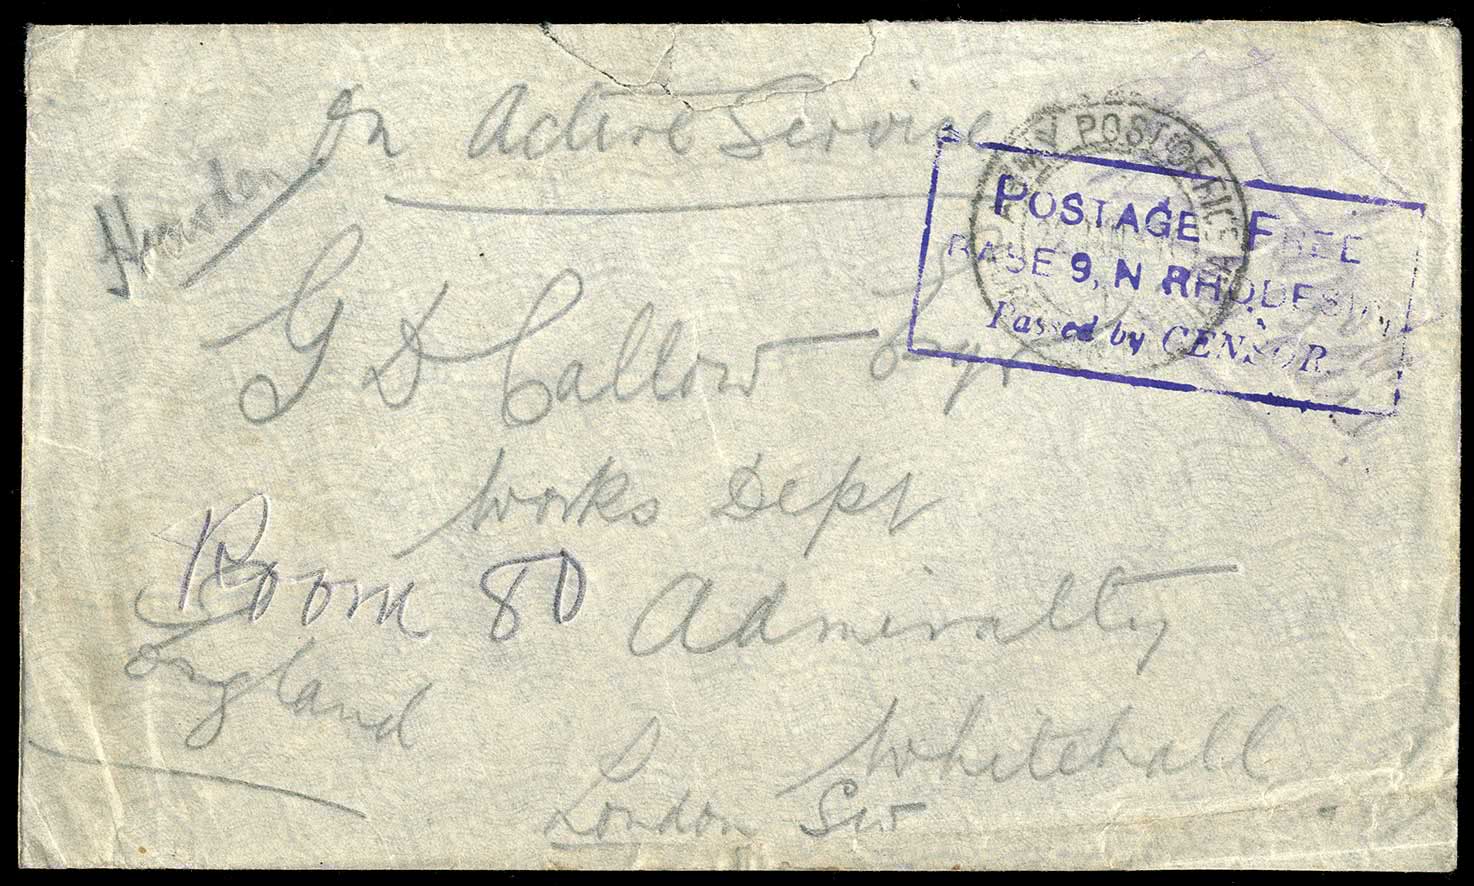 On Active Service
POST OFFICE
POSTAGE FREE
BASE 9, N RHODESIA
Passed by CENSOR
G D Callow Esqr
Works Dept
Room 80
Admiralty
England
Whitehall
London SW